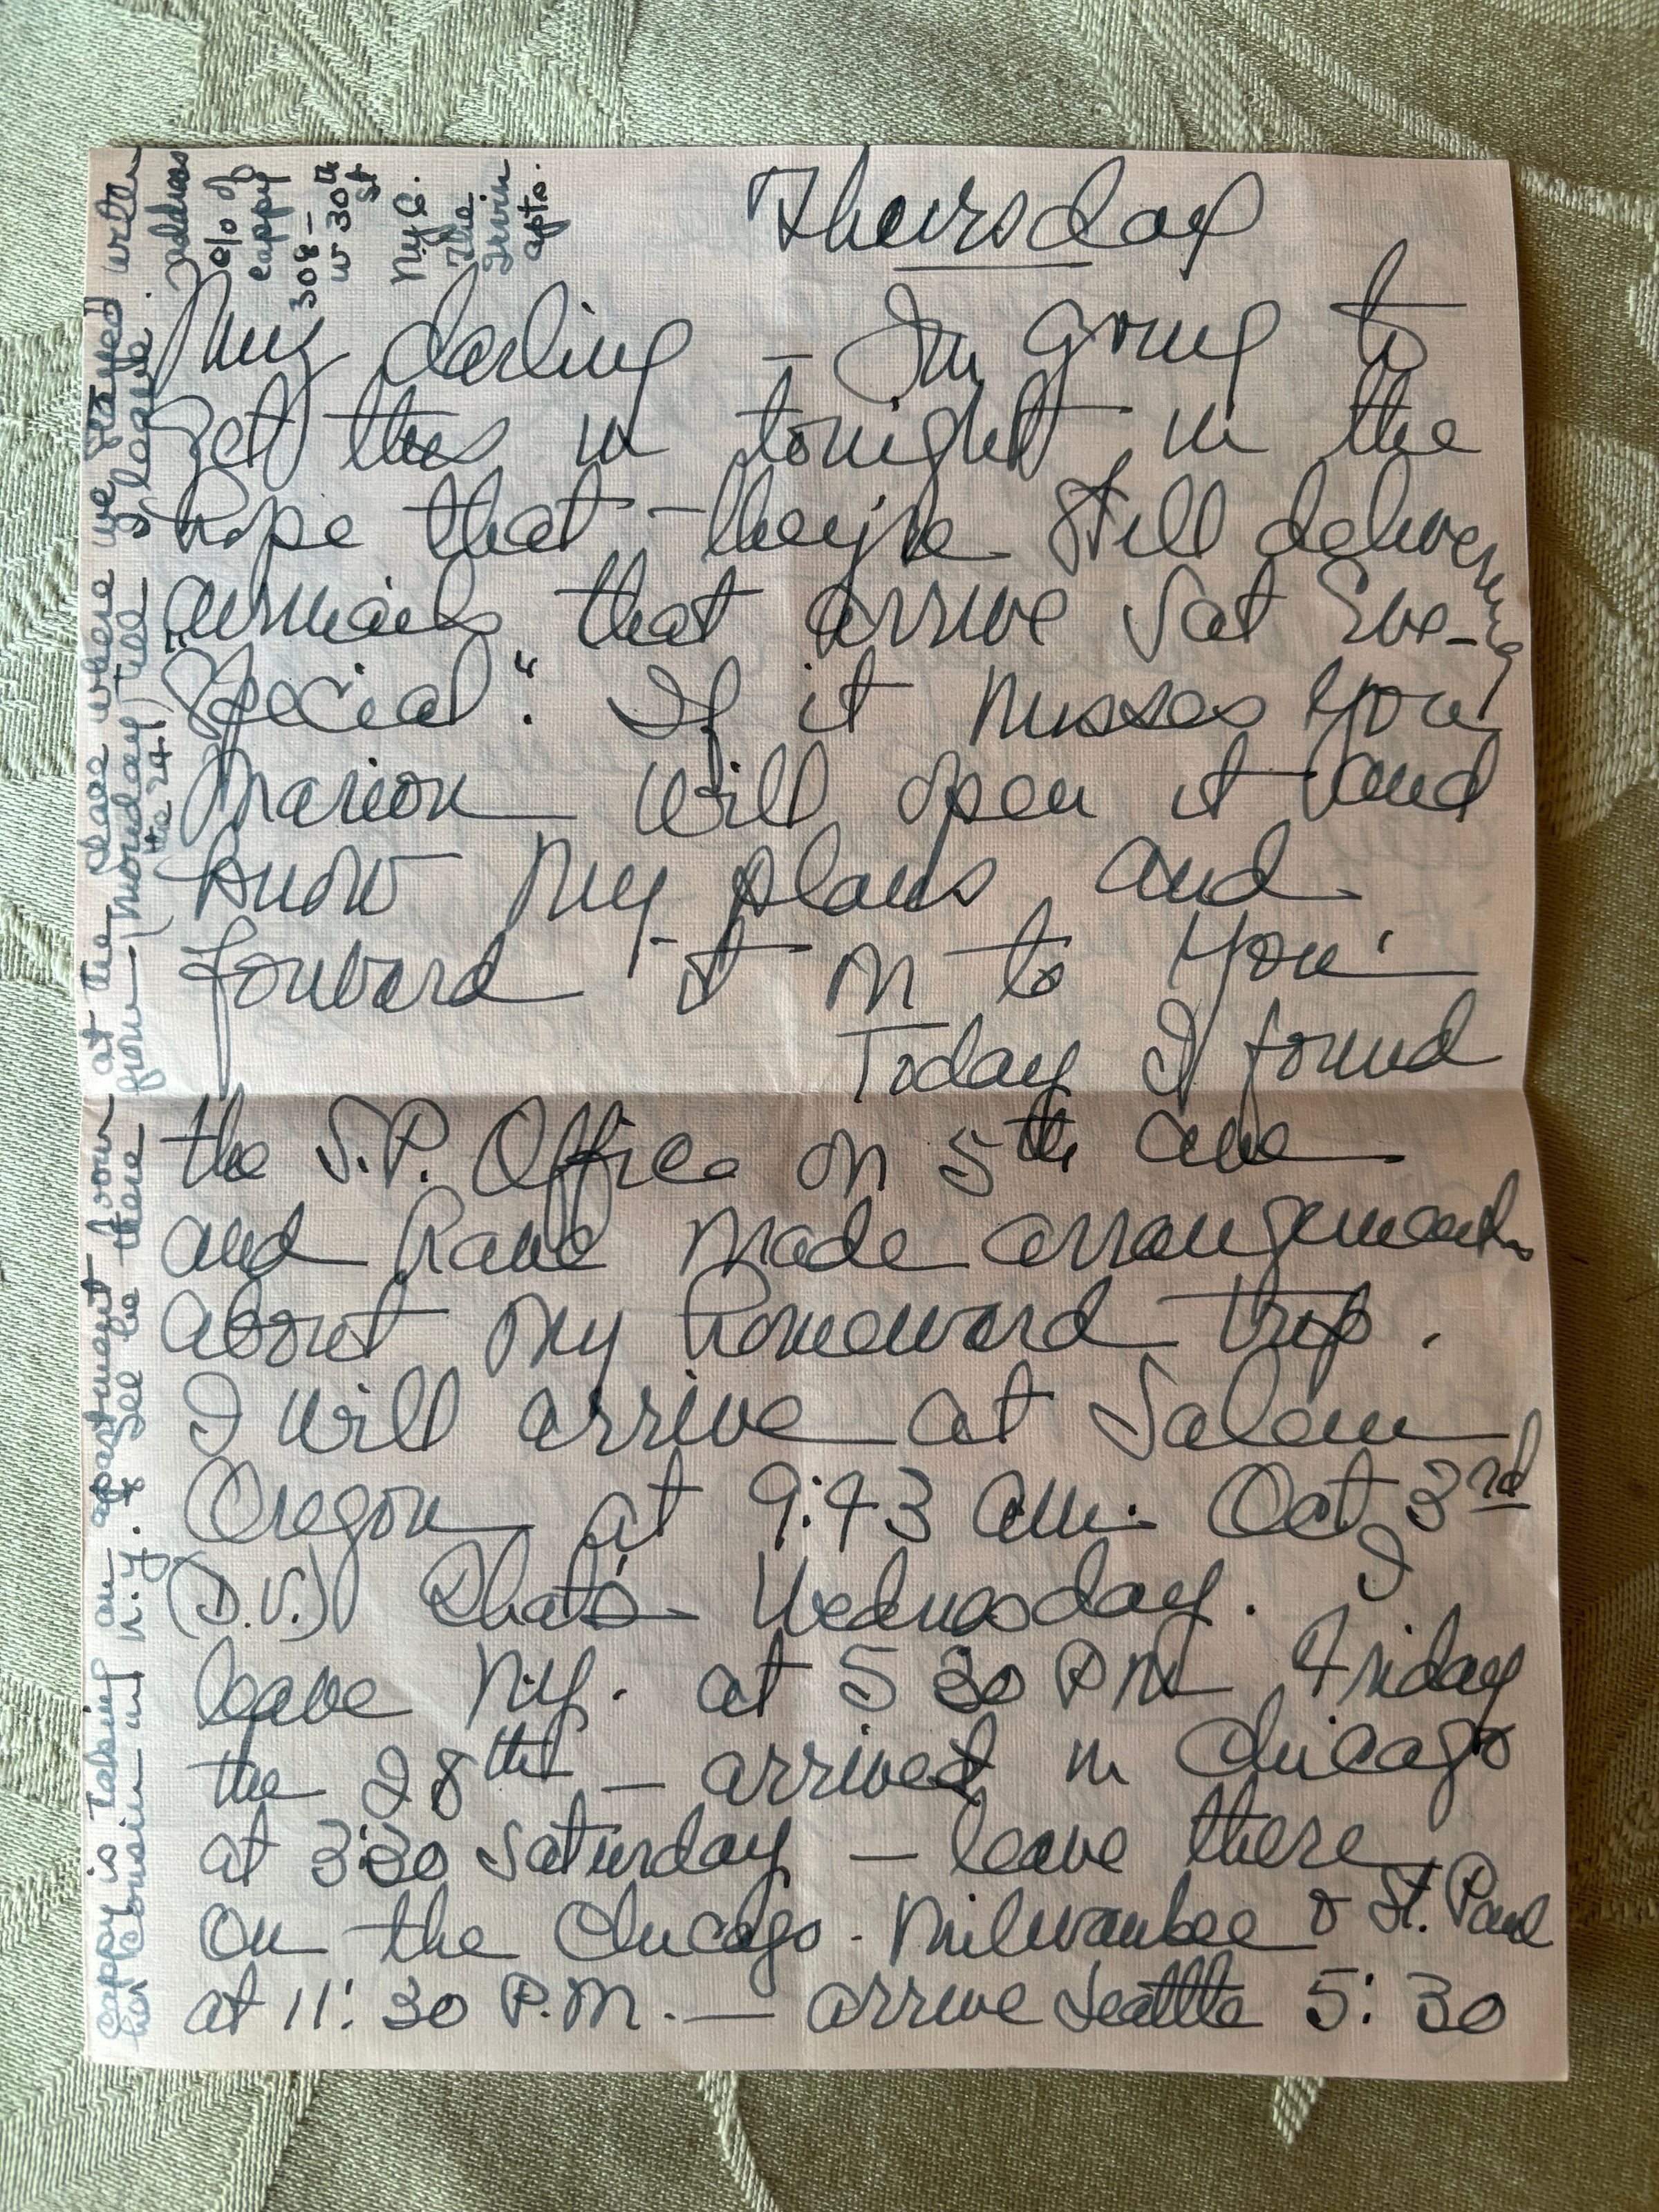 Thursday
My darling — I'm going to
get this in tonight in the
hope that they're still delivering
airmails that arrive Sat Eve-
"Special". If it misses you
Marion will open it and
know my plans and
forward it on to you.
Today I found
the S.P. Office on 5th ave
and have made arrangements
about my homeward trip.
I will arrive at Salem
Oregon at 9:43 am. Oct 3rd
(D.V.) That's Wednesday. I
leave N.Y. at 5 30 PM Friday
the 28th — arrived in Chicago
at 3:30 Saturday — leave there
on the Chicago - Milwaukee & St. Paul
at 11:30 P.M. — arrive Seattle 5:30
Cappy is taking an apartment from at the place where we stayed with
her cousin in N.Y. & I'll be there from (Monday the 24th) till I leave.
address
c/o of
Cappy
308 —
W 30th
St
N.Y.C.
The
Irwin
apts.